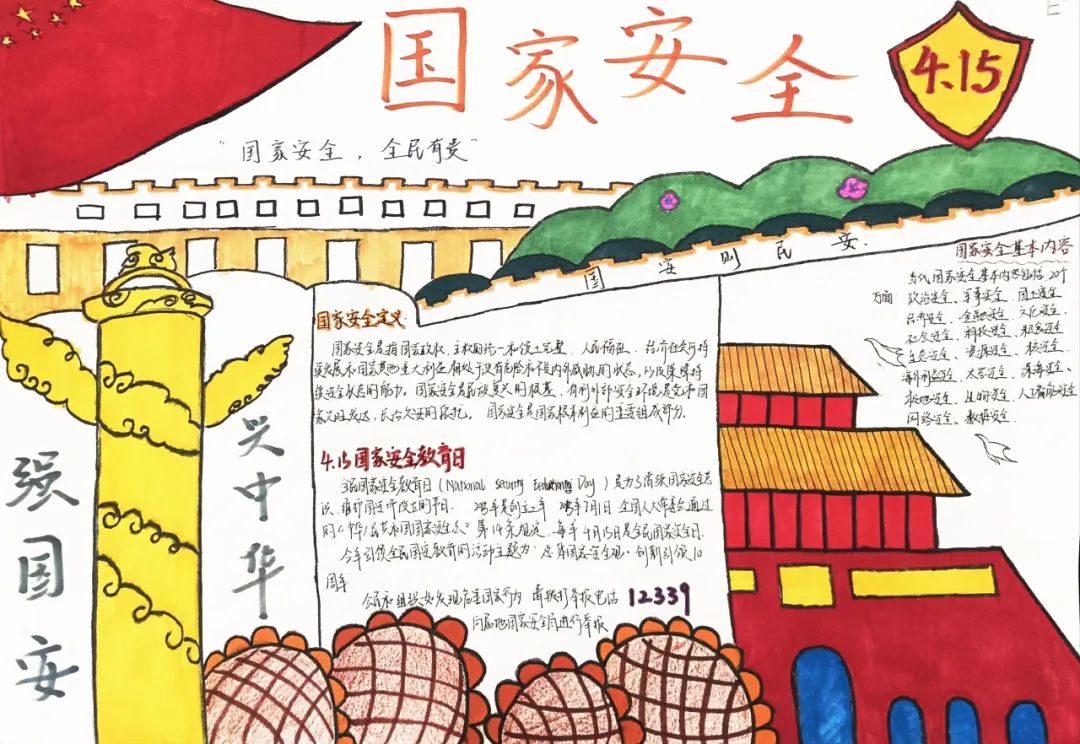 国家安全
4.15
"国家安全，全民有责"
国安则民安.
国家安全基本内容
当代国家安全基本内容包括20个
方面 政治安全、军事安全、国土安全
经济安全、金融安全、文化安全、
社会安全、科技安全、粮食安全
生态安全、资源安全、核安全、
海外利益安全、太空安全、深海安全、
极地安全、生物安全、人工智能安全
网络安全、数据安全.
国家安全定义.
国家安全是指国家政权、主权、统一和领土完整、人民福祉、经济社会可持
续发展和国家其他重大利益相对处于没有危险和不受内外威胁的状态,以及保障持
续安全状态的能力. 国家安全是民族复兴的根基,
国家安全是国家根本利益的主要组成部分.
4.15国家安全教育日
全民国家安全教育日(National Security Day)是为了增强国家安全意
识,维护国 而设立的节日. 7月1日全国人大常委会通过
的《中华人民共和国国家安全法》第14条规定,每年4月15日是全民国家安全日.
今年 全民国安教育的活动主题为: 国家安全观·创新引领10
周年
公民和组织如发现危害国家行为 请拨打举报电话 12339
向 地国家安全局进行举报
强国安
兴中华